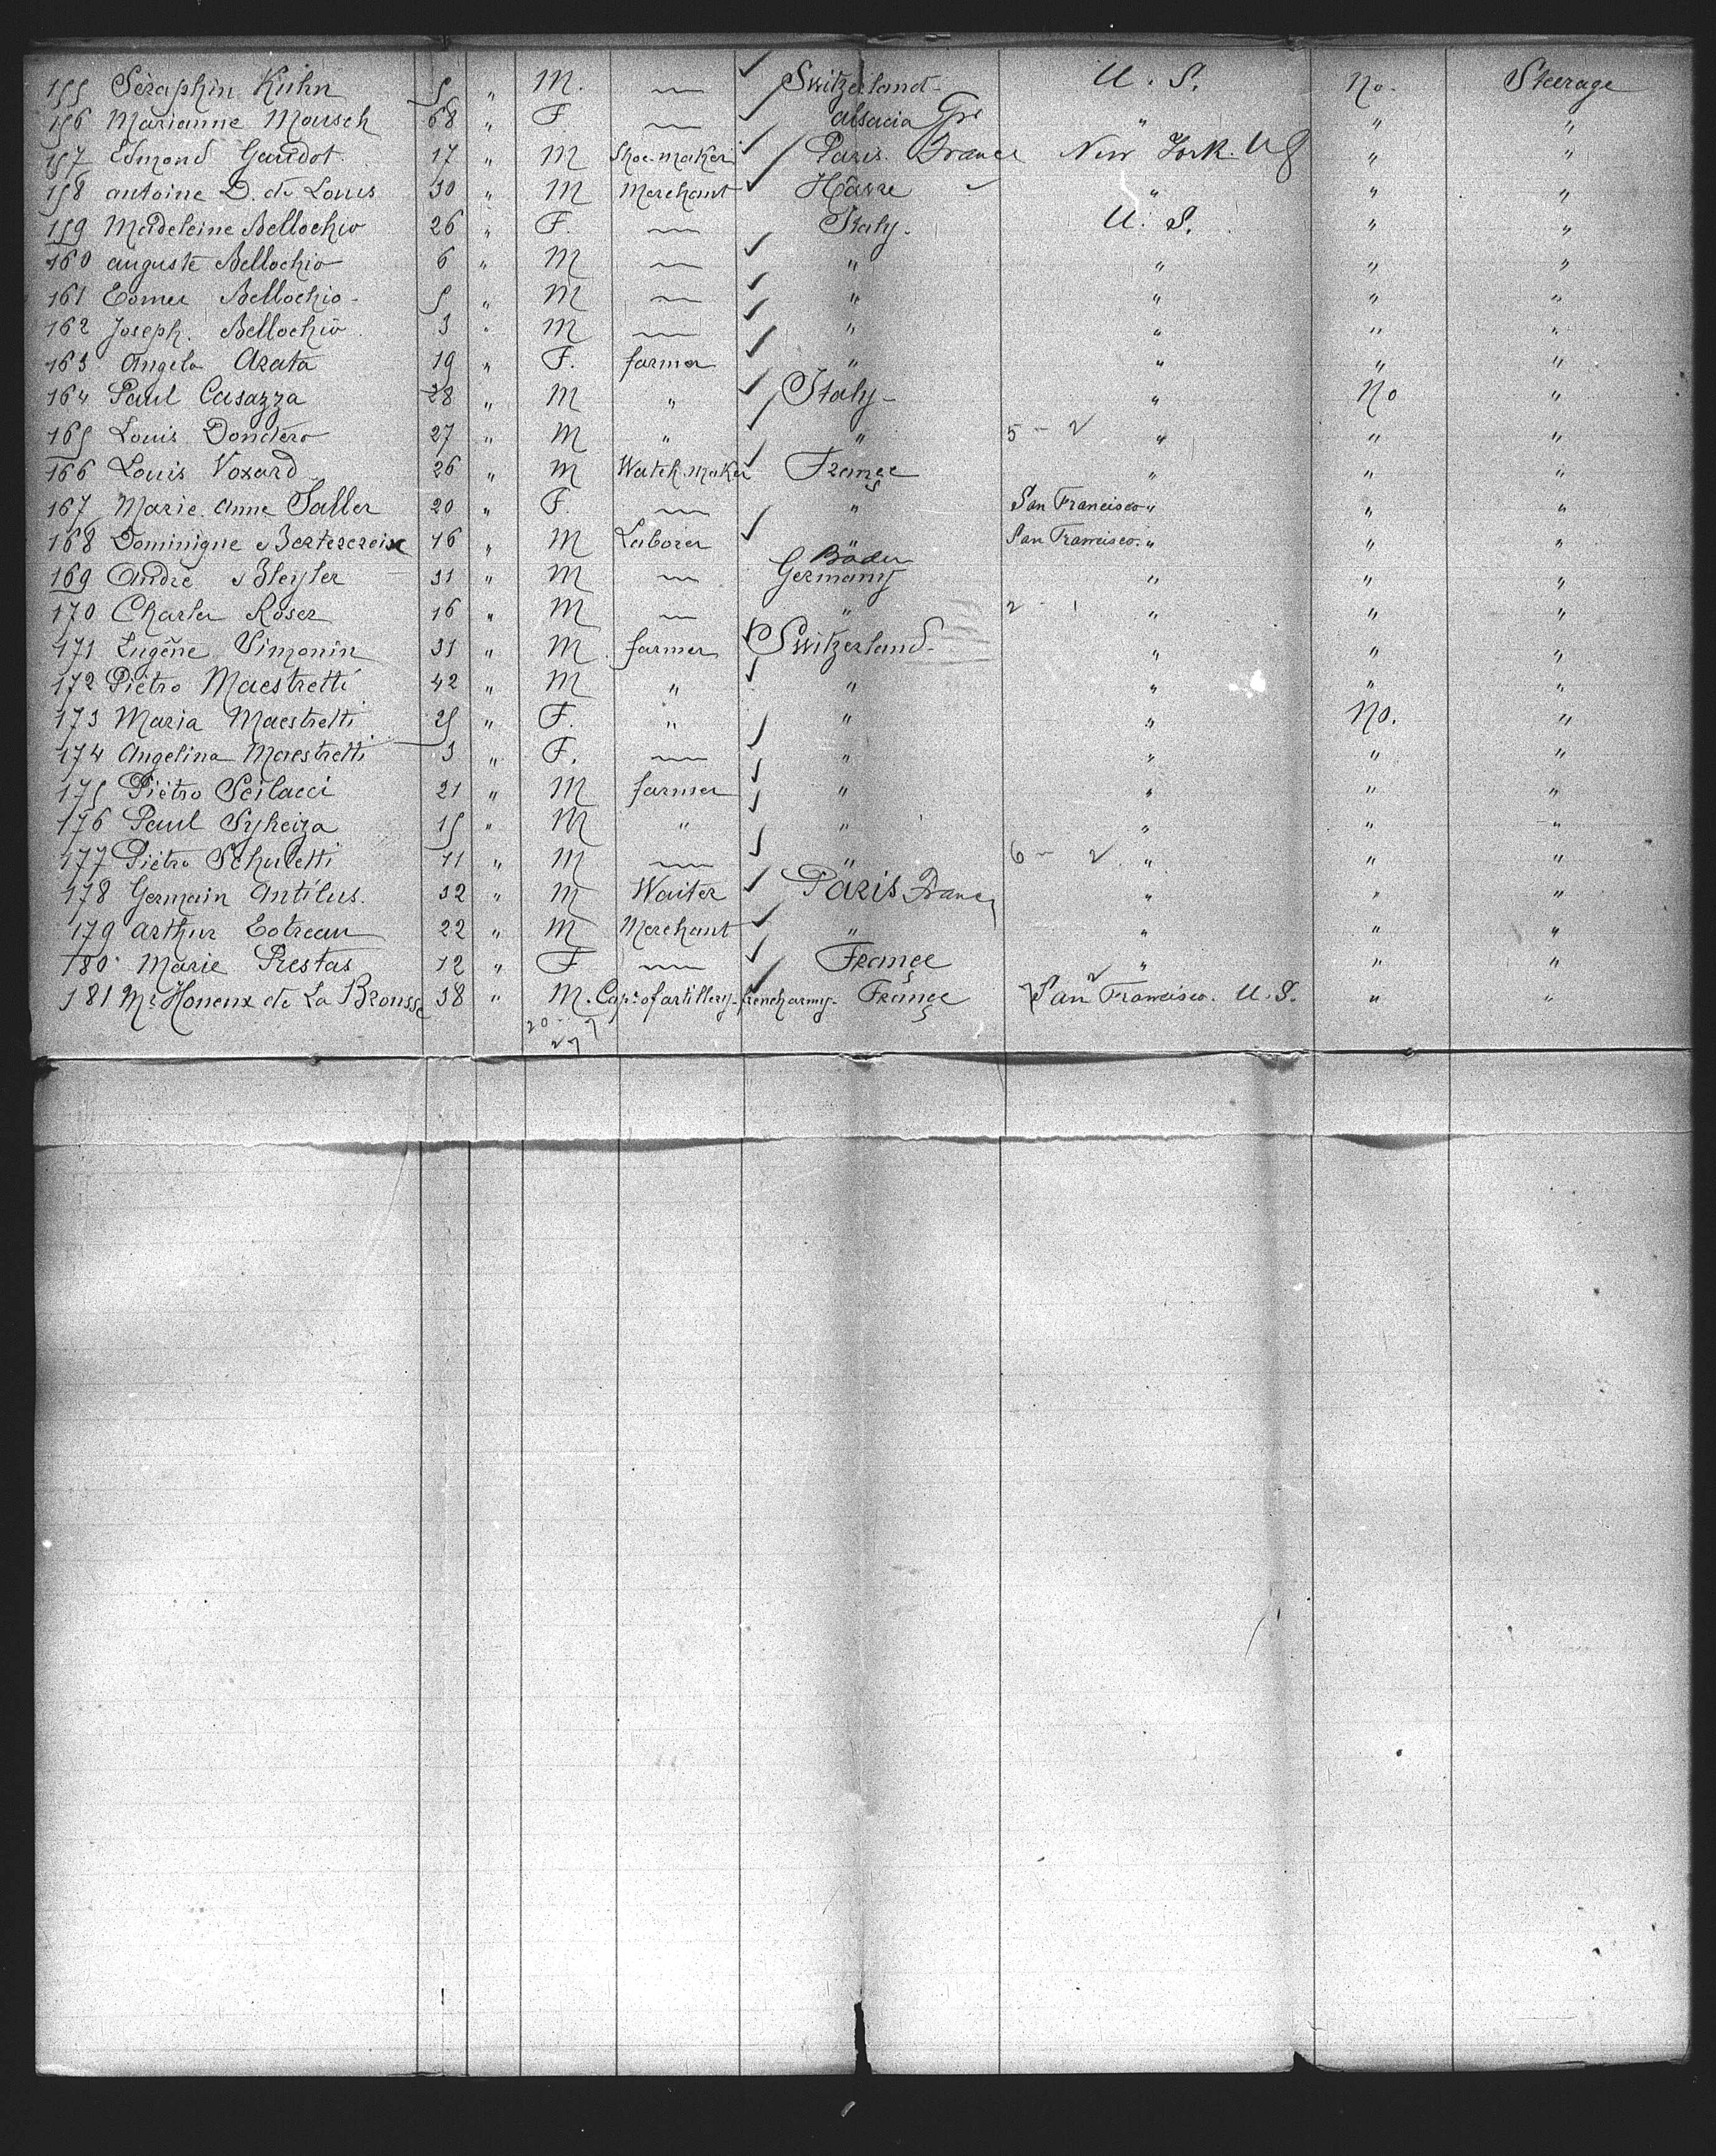 155 Séraphin Kuhn 5 " M. — Switzerland - U. S. No. Steerage
156 Marianne Mausch 68 " F — alsacia Gps " " "
157 Edmond Gaudot. 17 " M Shoe-maker Paris France New York. U S " "
158 antoine D. de Louis 30 " M Merchant Havre " " "
159 Madeleine Bellochio 26 " F. — Italy. U. S. " "
160 auguste Bellochio 6 " M — " " " "
161 Bellochio - 5 " M — " " " "
162 Joseph. Bellochio 3 " M — " " " "
163 Angela Arata 19 " F. farmer " " " "
164 Paul Casazza 28 " M " Italy - " No "
165 Louis Dondero 27 " M " " 5 - 2 " " "
166 Louis Voxard 26 " M Watch maker France " " "
167 Marie. Anne Saller 20 " F. — " San Francisco " " "
168 Dominique 16 " M Laborer San Francisco. " " "
169 André Bleyler 31 " M — Baden Germany " " "
170 Charles Roser 16 " M — " 2 - 1 " " "
171 Eugène Simonin 31 " M. farmer Switzerland - " " "
172 Piétro Maestretti 42 " M " " " " "
173 Maria Maestretti 25 " F. " " " No. "
174 Angelina Maestretti 3 " F. — " " " "
175 Piétro Scilacci 21 " M farmer " " " "
176 Paul 15 " M " " " " "
177 Piétro 11 " M — " 6 - 2 " " "
178 Germain Antilus. 32 " M Waiter Paris France " " "
179 arthur 22 " M Merchant " " " "
180 Marie Prestas 12 " F — France 2 " " "
181 Mr. Honeux de La Brousse 38 " M. Capt. of artillery - french army - France San Francisco. U. S. " "
20 - 7
27